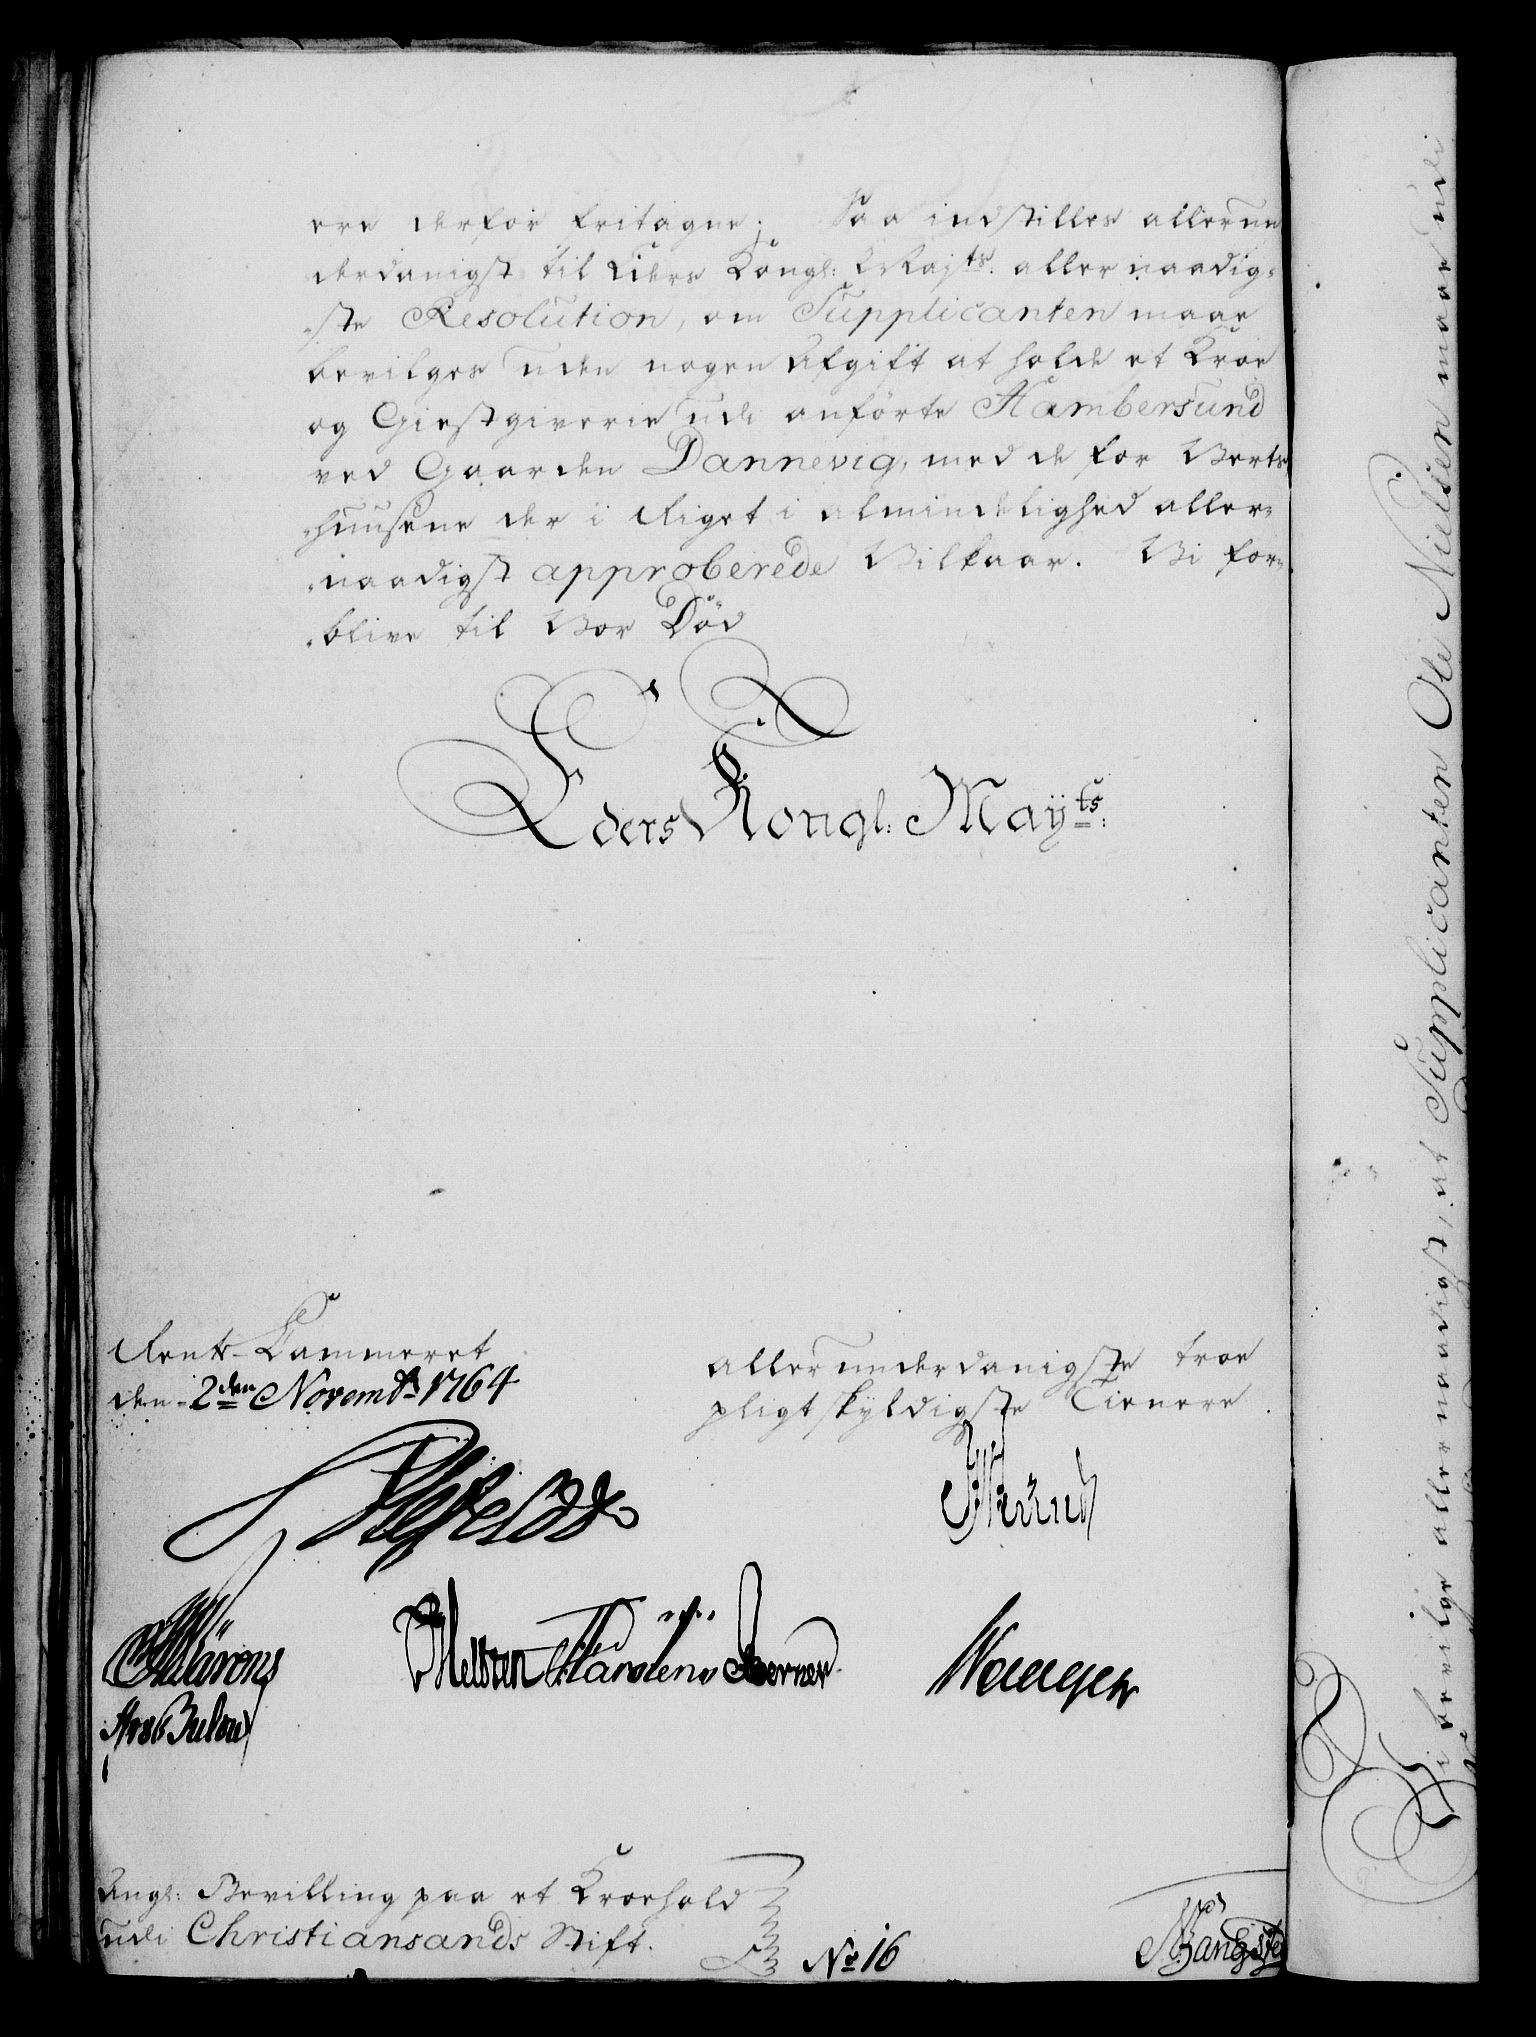 ere derfor fritagne; Saa indstilles allerun
derdanigst til Eders Kongl: Mayts. allernaadig-
-ste Resolution, om Supplicanten maae
bevilges uden nogen Afgift at holde et Kroe
og Giestgiverie udi anførte Hambersund
ved Gaarden Dannevig, med de for Verts
-huusene der i Riget i almindelighed aller-
-naadigst approberede Vilkaar. Vi for-
-blive til Vor Død
Eders Kongl: Mayts:
Rente-Cammeret
den 2den Novembr 1764
allerunderdanigste troe
pligtskyldigste Tienere
Angl: Bevilling paa et Kroehold
udi Christiansands Stift.
No 16
Vi bevilge allernaadigst, at Supplicanten Ole Nielsen maae udi